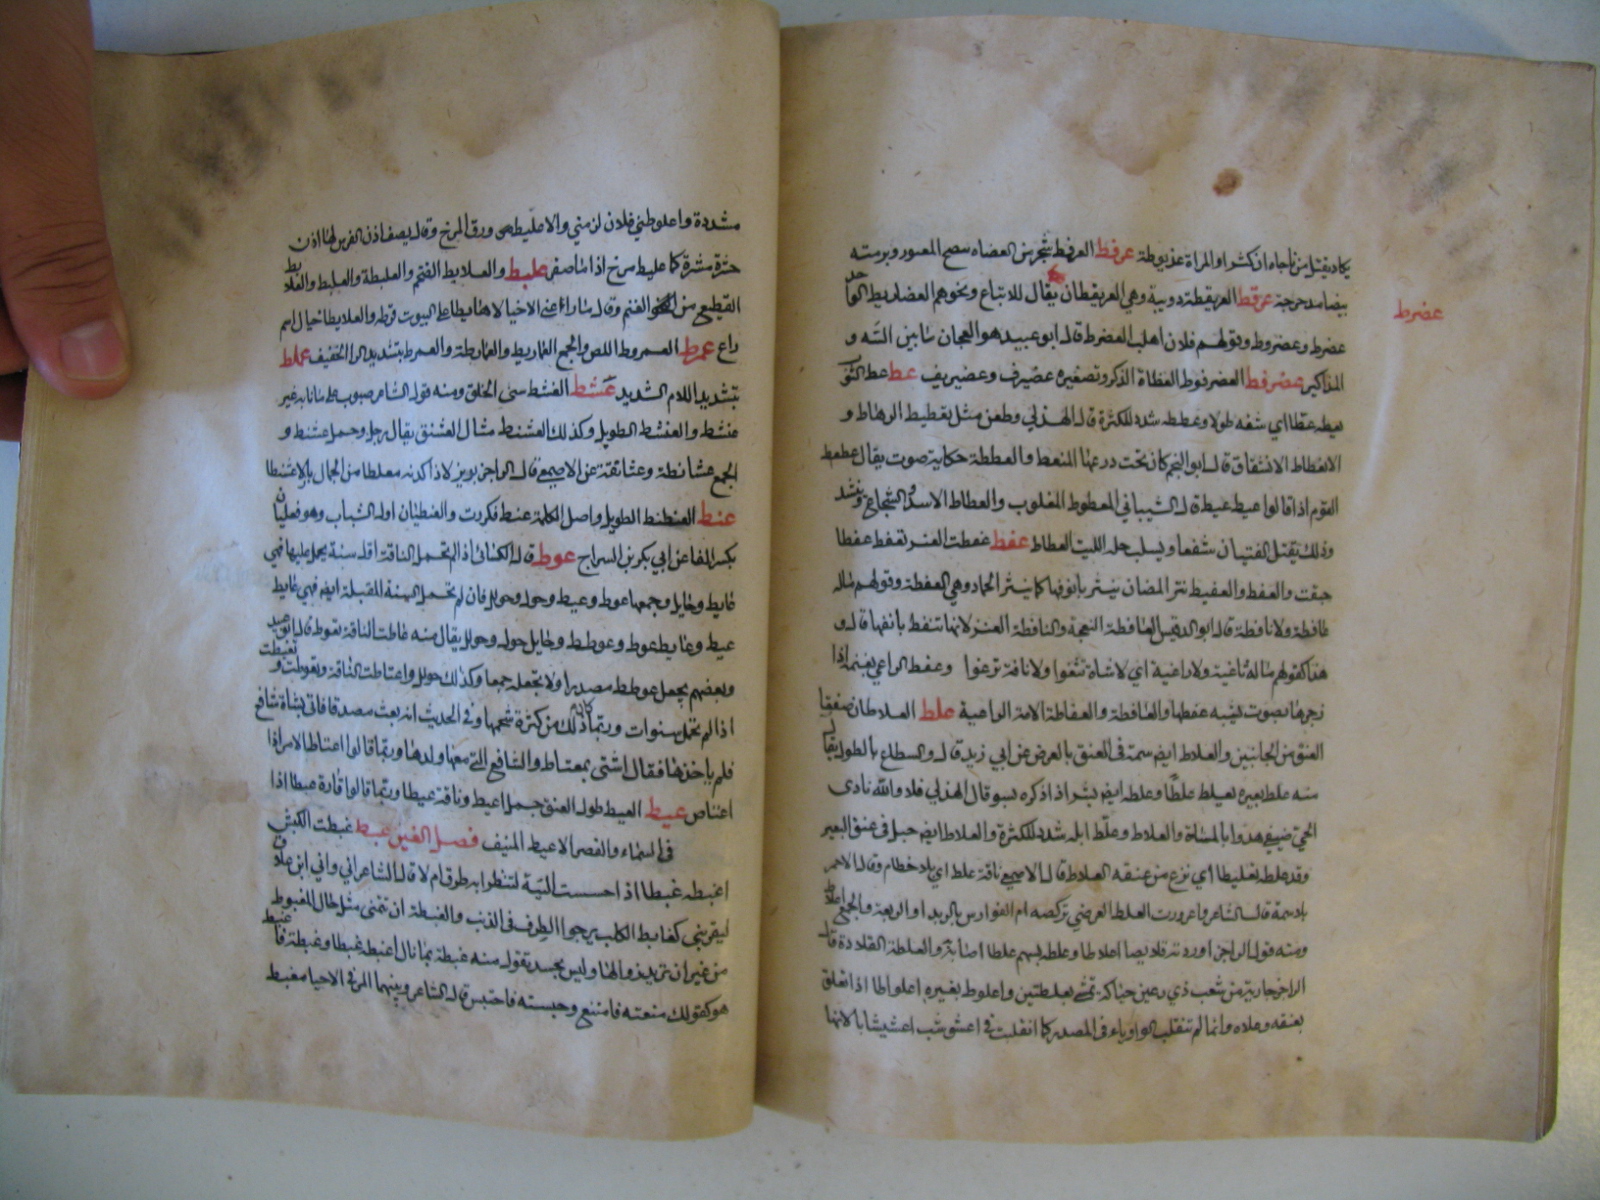 يكاد يقتل من ناجاه ان كشرا والمراة عذيوطة عرفط العرفط شجر من العضاه
بيضا مدحرجة عرقط العريقطة دويبة وهي العريقطان يقال للاتباع ونحوهم العضاريط الواحد
عضرط
عضرط وعضروط وقولهم فلان اهلب العضرط قال ابو عبيد هو العجان ما بين السه و
المذاكير عضرفوط العضرفوط العظاة الذكر وتصغيره عضيرف وعضيريف عطط عط الثوب
يعطه عطا اي شقه طولا وعططه شدد للكثرة قال الهذلي وطعن مثل تعطيط الرهاط و
الانعطاط الانشقاق قال ابو النجم كان تحت درعها المنعط والعطعطة حكاية صوت يقال عطعط
القوم اذا قالوا عيط عيط قال الشيباني المعطوط المغلوب والعطاط الاسد والشجاع وينشد
وذلك يقتل الفتيان شفعا ويسلب حلة الليث العطاط عفط عفطت العنز تعفط عفطا
حبقت والعفط والعفيط نثر الضان ينثر بانوفها كما ينثر الحمار وهي العفطة وقولهم ماله
عافطة ولا نافطة قال ابو الدقيش العافطة النعجة والنافطة العنز لانها تنفط بانفها قال و
هذا كقولهم ماله ثاغية ولا راغية اي لا شاة تثغوا ولا ناقة ترغوا وعفط الراعي بغنمه اذا
زجرها بصوت يشبه عفطها والعافطة والعفاطة الامة الراعية علط العلاطان صفقا
العنق من الجانبين والعلاط ايضا سمة في العنق بالعرض عن ابي زيد قال والسطاع بالطول يقال
منه علط بعيره يعلط علطا وعلطه ايضا بشر اذا ذكره بسو قال الهذلي فلا والله نادى
الحي ضيفي هدوا بالمساة والعلاط وعلط ابله شدد للكثرة والعلاط ايضا حبل في عنق البعير
وقد علطه تعليطا اي نزع من عنقه العلاط قال الاصمعي ناقة علط اي بلا خطام وقال الاحمر
بلا سمة قال الشاعر واعرورت العلط العرضي تركضه ام الفوارس بالديداء والربعة والجمع اعلاط
ومنه قول الراجز اوردته قلايصا اعلاطا وعلطه بسهم علطا اصابه والعلطة القلادة قال
الراجز جارية من شعب ذي رعين حياكة تمشي بعلطتين واعلوط بعيره اعلواطا اذا تعلق
بعنقه وعلاه وانما لم تنقلب الواو ياء في المصدر كما انقلبت في اعشوشب اعشيشابا لانها
مشددة واعلوطني فلان لزمني والاعليط ورق المرخ وقال يصف اذن الفرس لها اذن
حشرة مشرة كاعليط مرخ اذا ما صفر علبط والعلابط الضخم والعلبطة والعلبط والعلابط
القطيع من الغنم وقال ما راعني الا خيال هابطا على البيوت قوطه العلابطا خيال اسم
راع عمرط العمروط اللص والجمع العماريط والعمارطة والعمرط بتشديد الرا الخفيف عملط
بتشديد اللام الشديد عشنط العنشط سي الخلق ومنه قول الشاعر
عنشط والعنشط الطويل وكذلك العشنط مثال العشنق يقال رجل وجمل عشنط و
الجمع عشانطة وعشانقة عن الاصمعي قال الراجز بويزلا ذا كدنة معلطا من الجمال بازلا عشنطا
عنط العنطنط الطويل واصل الكلمة عنط فكررت والعنطيان اول الشباب وهو فعليان
بكسر الفا عن ابي بكر بن السراج عوط قال الكسائي اذا لم تحمل الناقة اول سنة يحمل عليها فهي
عايط وحايل وجمعها عوط وعيط وحول وحولل فان لم تحمل السنة المقبلة ايضا فهي عايط
عيط وعايط عوط وعوطط وحايل حول وحولل يقال منه عاطت الناقة تعوط قال ابو عبيد
وبعضهم يجعل عوطط مصدرا ولا يجعله جمعا وكذلك حولل واعتاطت الناقة وتعوطت وتعيطت
اذا لم تحمل سنوات وربما كان ذلك من كثرة شحمها وفي الحديث انه بعث مصدقا فاتي بشاة شافع
فلم ياخذها فقال ائتني بمعتاط والشافع التي معها ولدها وربما قالوا اعتاط الامر اذا
اعتاص عيط العيط طول العنق جمل اعيط وناقة عيطا وربما قالوا قارة عيطا اذا
في السماء والقصر الاعيط المنيف فصل الغين غبط غبطت الكبش
اغبطه غبطا اذا احسست اليته لتنظر ابه طرق ام لا قال الشاعر اني واتي ابن علاق
ليقريني كغابط الكلب يرجوا الطرق في الذنب والغبطة ان تتمنى مثل حال المغبوط
من غير ان تريد زوالها وليس بحسد تقول منه غبطته بما نال اغبطه غبطا وغبطة فاغتبط
هو كقولك منعته فامتنع وحبسته فاحتبس قال الشاعر وبينما المرء في الاحياء مغتبط